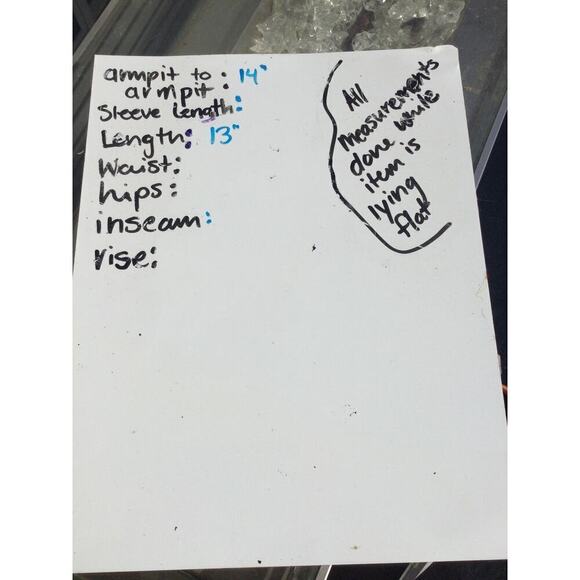 armpit to : 14"
armpit :
Sleeve Length:
Length: 13"
Waist:
hips:
inseam:
rise:
All
measurements
done while
item is
lying
flat